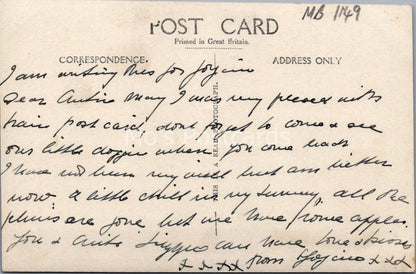 MB 1149
POST CARD
Printed in Great Britain.
CORRESPONDENCE.
ADDRESS ONLY
THIS IS A REAL PHOTOGRAPH.
I am writing this for
Dear Auntie May I was very pleased with
post card dont forget to come & see
our little doggie when you come back
I have not been very well but am better
now a little chill in my tummy all the
plums are gone but we have some apples
you & Auntie can have love & kisses
x x x x from x x x